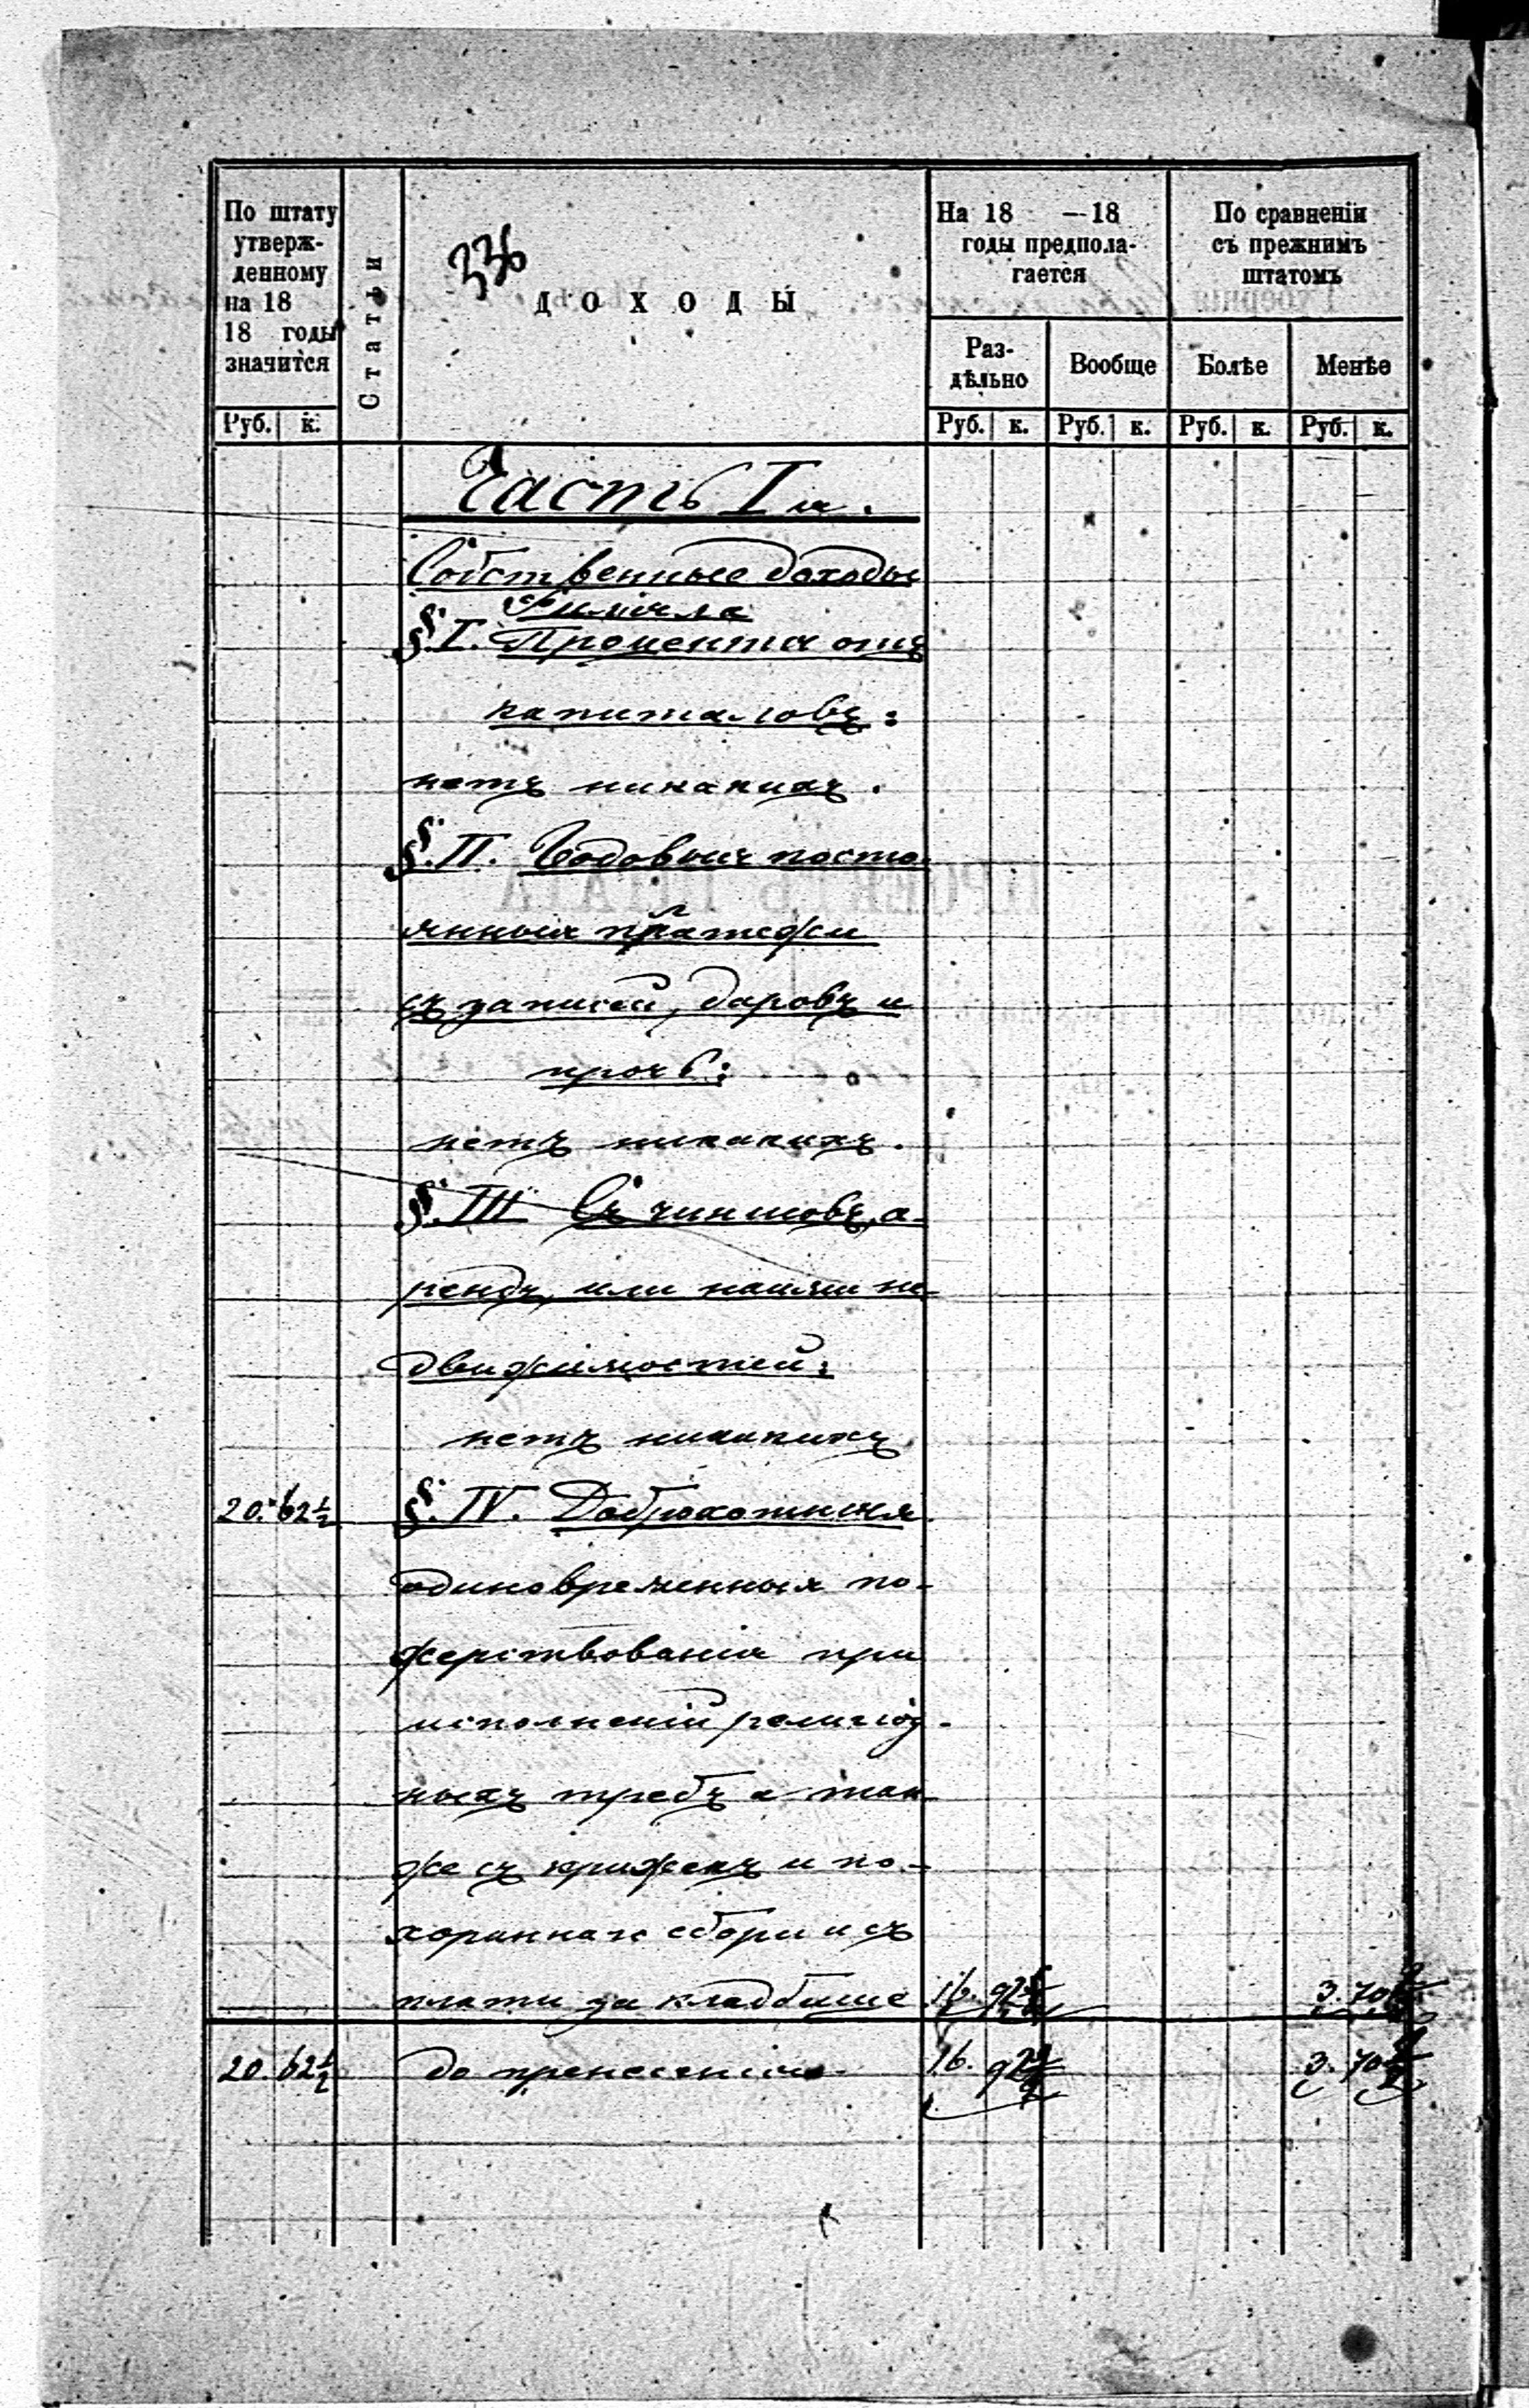 336
По штату
утверж-
денному
на 18
18 годы
значится
Статьи
ДОХОДЫ
На 18 —18
годы предпола-
гается
По сравненіи
съ прежнимъ
штатомъ
Раз-
дѣльно
Вообще
Болѣе
Менѣе
Руб. к.
Руб. к. Руб. к. Руб. к. Руб. к.
Часть I я.
Собственные доходы
Филіала
§. I. Процента отъ
капиталовъ:
нетъ никакихъ.
§. II. Годовыя посто
янныя платежи
съ записей, даровъ и
прочь:
нетъ никакихъ.
§. III Съ чиншовъ, а-
рендъ, или наима не-
движимостей:
нетъ никакихъ
20. 62 1/2 §. IV. Доброхотныя
одиновременныя по-
жертвованія при
исполненіи религіоз-
ныхъ требъ а так-
же съ крыжекъ и по-
хоронная сборы и съ
платы за кладбище 16. 92 3. 70
20. 62 1/2 до пренесенію 16. 92 3. 70
ПРОЕКТЪ ШТАТА